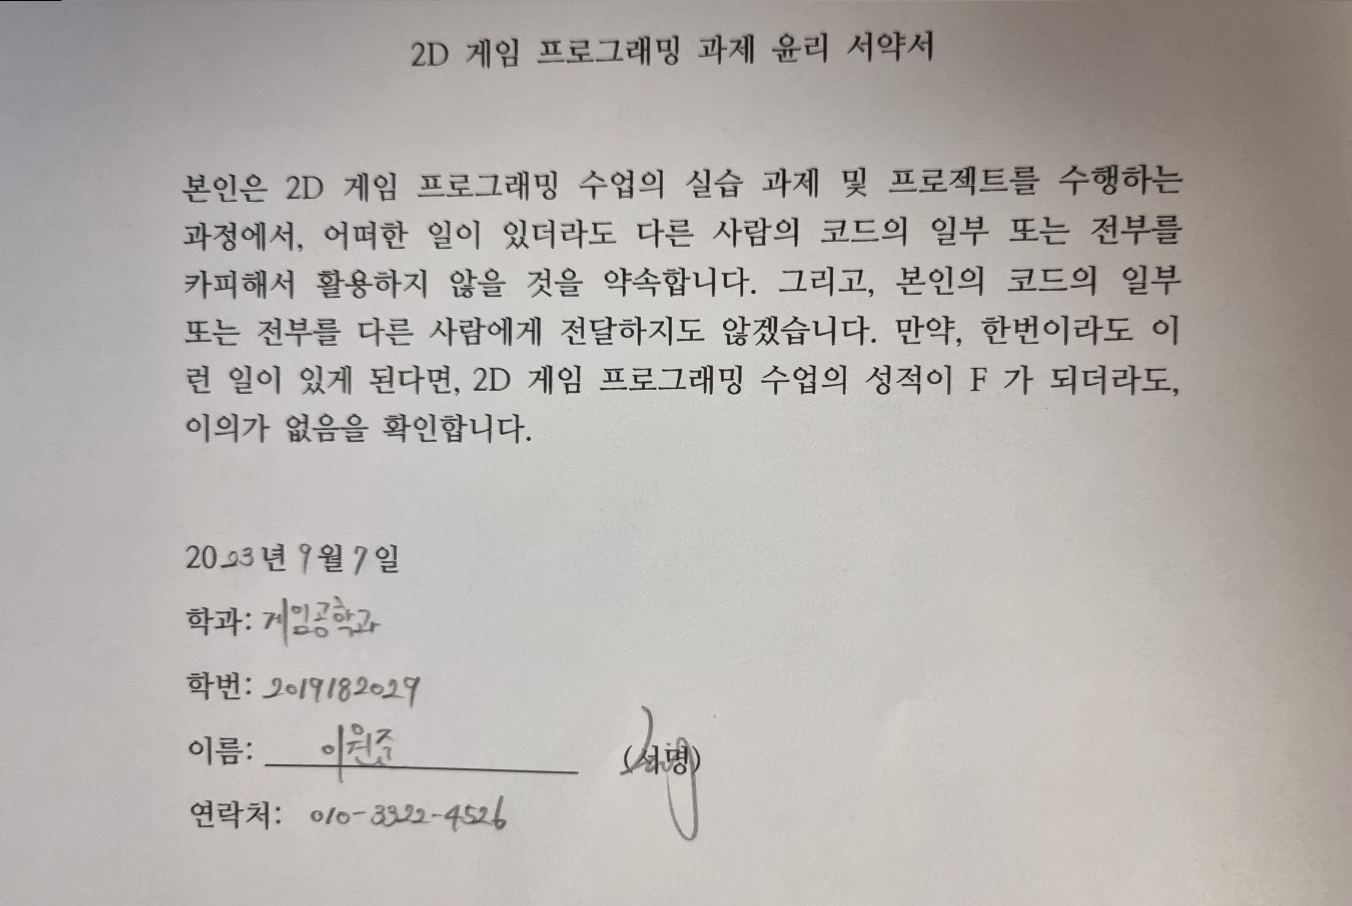 2D 게임 프로그래밍 과제 윤리 서약서
본인은 2D 게임 프로그래밍 수업의 실습 과제 및 프로젝트를 수행하는
과정에서, 어떠한 일이 있더라도 다른 사람의 코드의 일부 또는 전부를
카피해서 활용하지 않을 것을 약속합니다. 그리고, 본인의 코드의 일부
또는 전부를 다른 사람에게 전달하지도 않겠습니다. 만약, 한번이라도 이
런 일이 있게 된다면, 2D 게임 프로그래밍 수업의 성적이 F 가 되더라도,
이의가 없음을 확인합니다.
2023년 9월 7일
학과: 게임공학과
학번: 2019182029
이름: 이원주 (서명)
연락처: 010-3322-4526